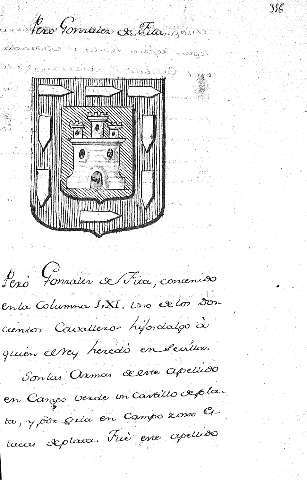 356
Pero Gonzalez de Fita
Pero Gonzalez de Fita, contenido
en la Columna LXI. Uno de los Dos-
cientos Cavalleros hijosdalgo à
quien el Rey heredó en Sevilla.
Son las Armas de este apellido
en Campo verde un Castillo de pla-
ta, y por orla en campo
de plata. Fué este apellido